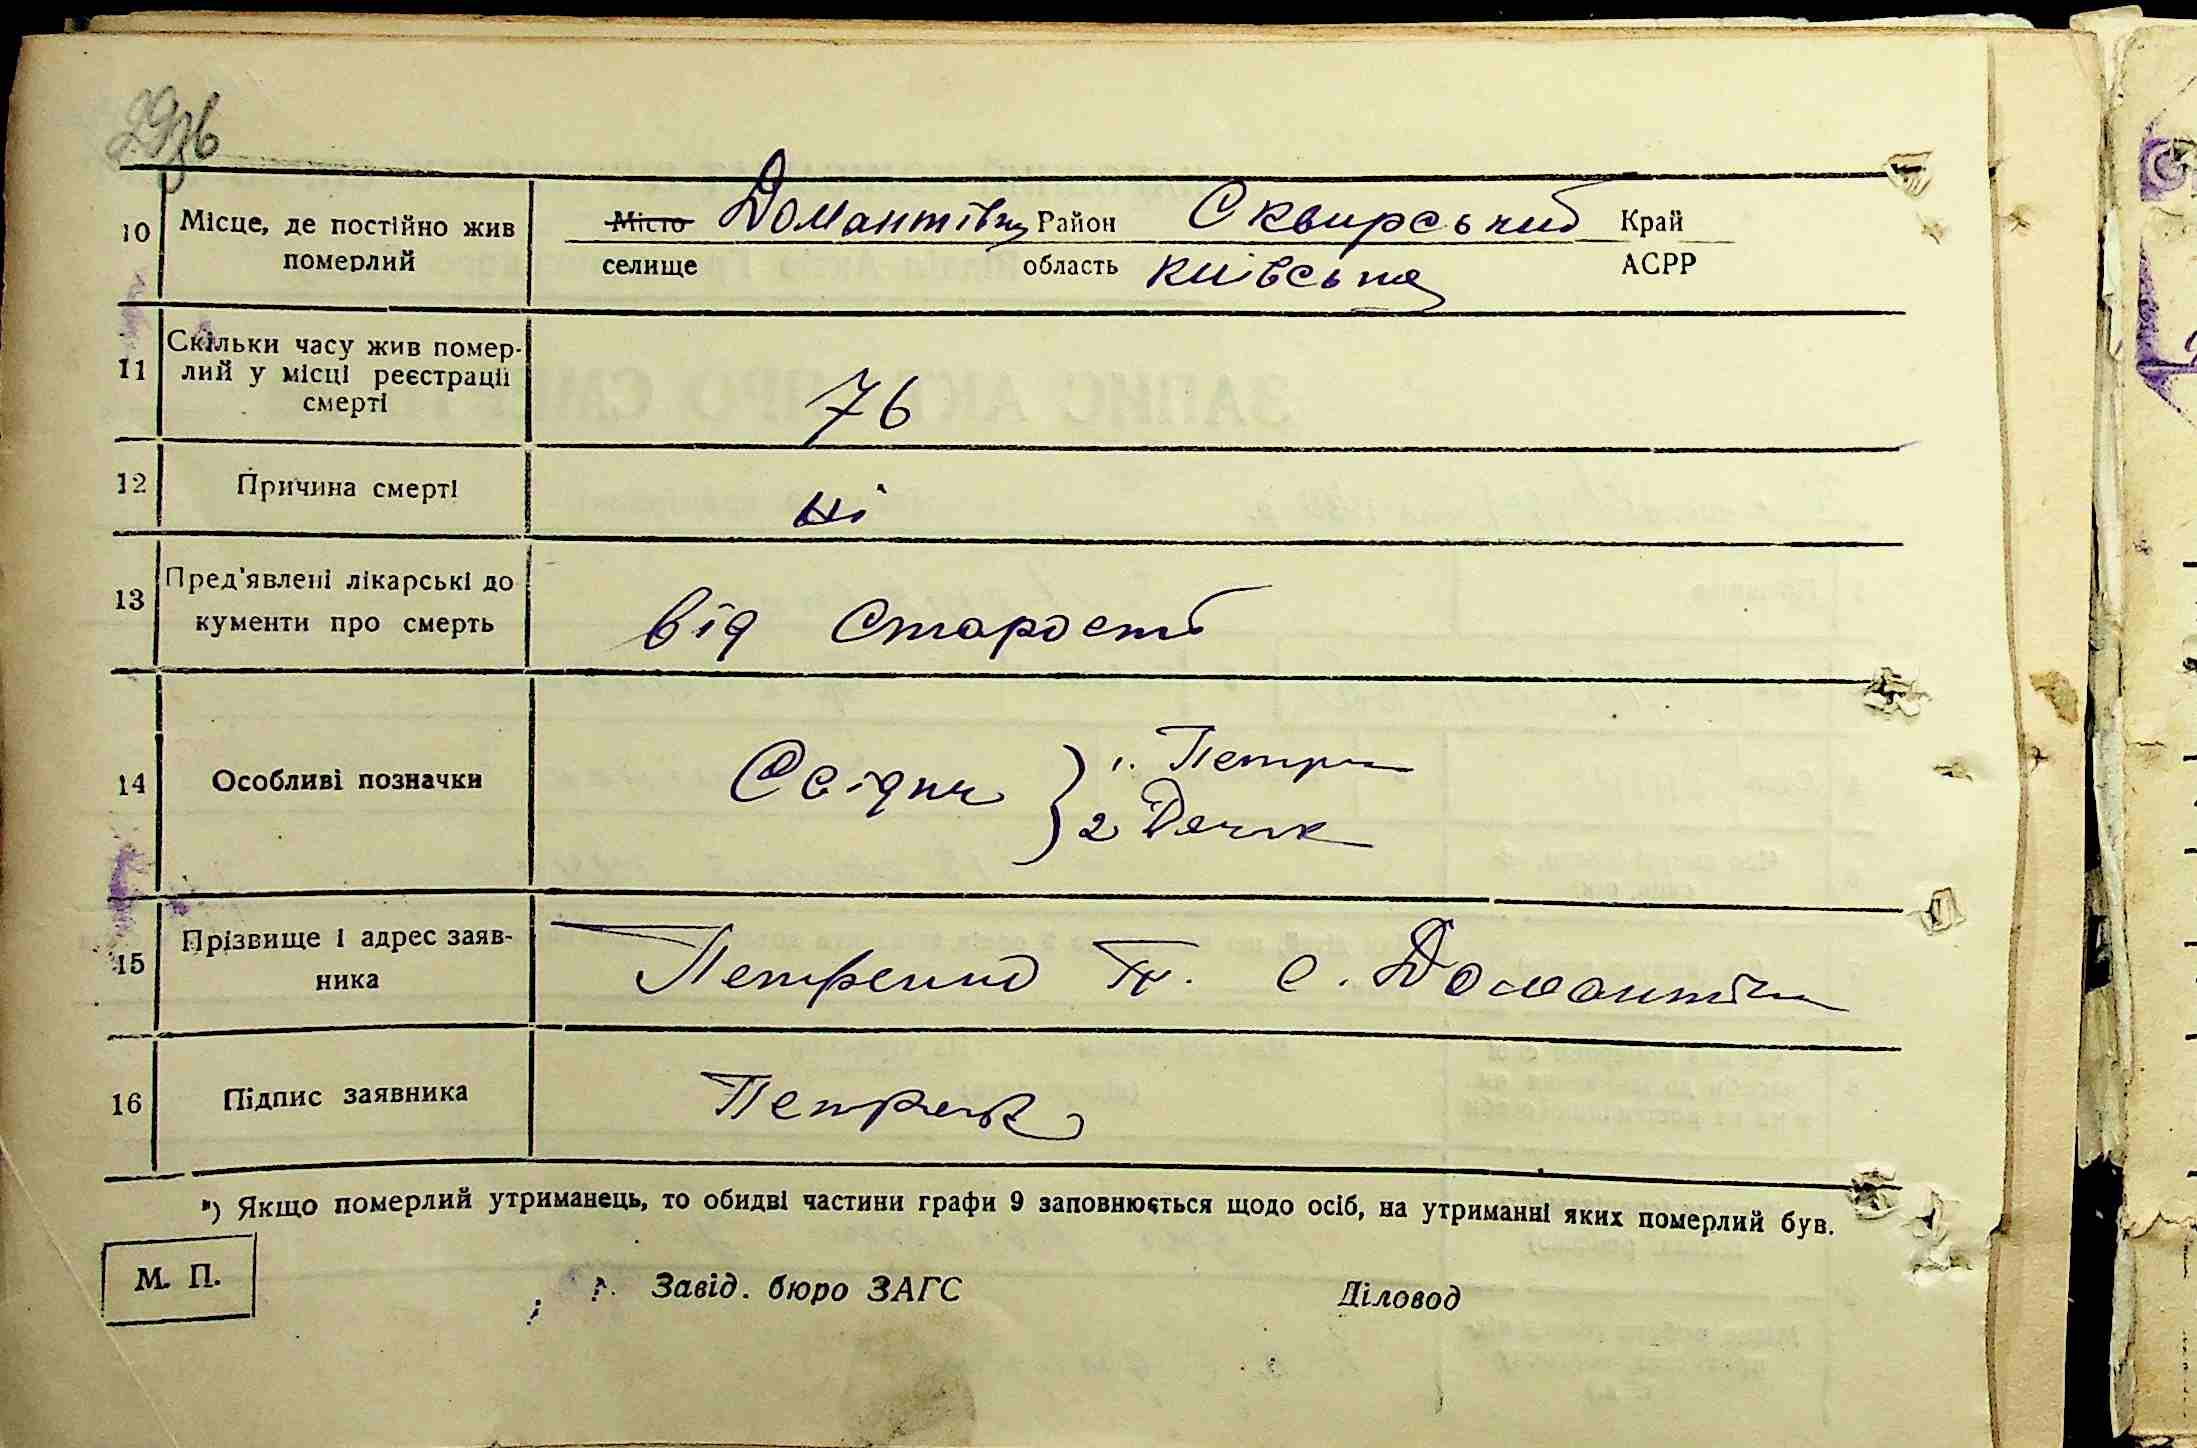 10 Місце, де постійно жив померлий
Місто Домантівка Район Сквирський Край
селище область Київська АСРР
11 Скільки часу жив помер-
лий у місці реєстрації
смерті
76
12 Причина смерті
ні
13 Пред'явлені лікарські до
кументи про смерть
від старості
14 Особливі позначки
Свідки } 1. Петрен
2 Дячок
15 Прізвище і адрес заяв-
ника
Петренко с. Домантівка
16 Підпис заявника
Петренко
*) Якщо померлий утриманець, то обидві частини графи 9 заповнюється щодо осіб, на утриманні яких померлий був.
М. П.
Завід. бюро ЗАГС Діловод